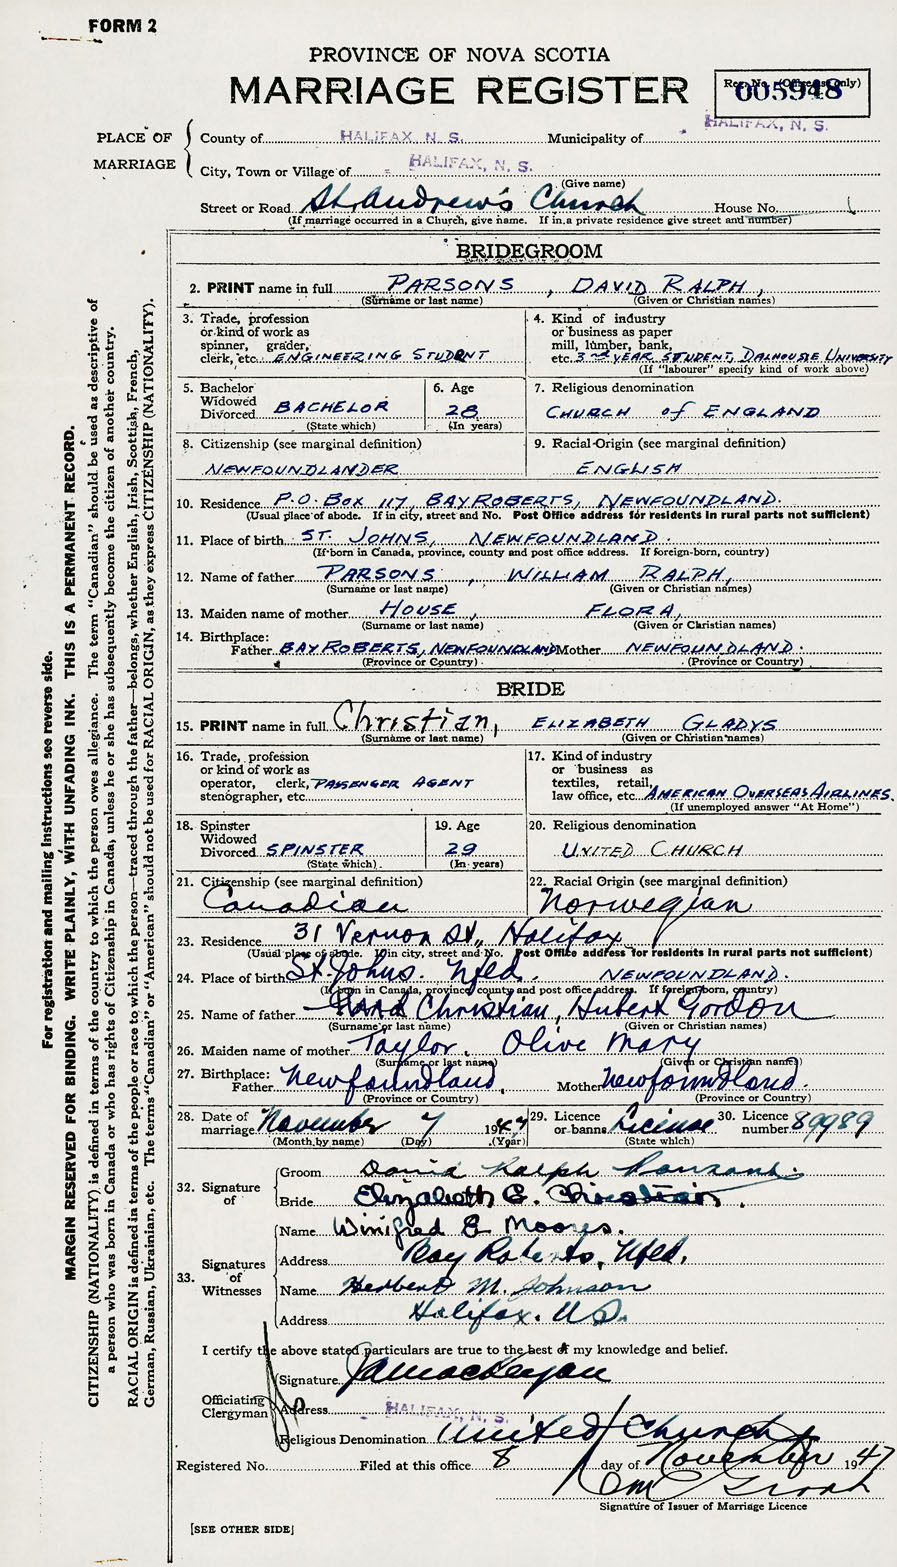 FORM 2
PROVINCE OF NOVA SCOTIA
MARRIAGE REGISTER
Reg. No. (Office use only)
005948
PLACE OF MARRIAGE
County of HALIFAX, N. S. Municipality of HALIFAX, N. S.
City, Town or Village of HALIFAX, N. S.
(Give name)
Street or Road St. Andrew's Church House No.
(If marriage occurred in a Church, give name. If in a private residence give street and number)
BRIDEGROOM
2. PRINT name in full PARSONS, DAVID RALPH,
(Surname or last name) (Given or Christian names)
3. Trade, profession or kind of work as spinner, grader, clerk, etc. ENGINEERING STUDENT
4. Kind of industry or business as paper mill, lumber, bank, etc. 3rd YEAR STUDENT, DALHOUSIE UNIVERSITY
(If "labourer" specify kind of work above)
5. Bachelor Widowed Divorced BACHELOR
(State which)
6. Age 28
(In years)
7. Religious denomination
CHURCH of ENGLAND
8. Citizenship (see marginal definition)
NEWFOUNDLANDER
9. Racial Origin (see marginal definition)
ENGLISH
10. Residence P.O. Box 117, BAY ROBERTS, NEWFOUNDLAND.
(Usual place of abode. If in city, street and No. Post Office address for residents in rural parts not sufficient)
11. Place of birth ST. JOHNS, NEWFOUNDLAND.
(If born in Canada, province, county and post office address. If foreign-born, country)
12. Name of father PARSONS, WILLIAM RALPH,
(Surname or last name) (Given or Christian names)
13. Maiden name of mother HOUSE, FLORA,
(Surname or last name) (Given or Christian names)
14. Birthplace:
Father BAY ROBERTS, NEWFOUNDLAND Mother NEWFOUNDLAND.
(Province or Country) (Province or Country)
BRIDE
15. PRINT name in full Christian, ELIZABETH GLADYS
(Surname or last name) (Given or Christian names)
16. Trade, profession or kind of work as operator, clerk, stenographer, etc. PASSENGER AGENT
17. Kind of industry or business as textiles, retail, law office, etc. AMERICAN OVERSEAS AIRLINES.
(If unemployed answer "At Home")
18. Spinster Widowed Divorced SPINSTER
(State which)
19. Age 29
(In years)
20. Religious denomination
UNITED CHURCH
21. Citizenship (see marginal definition)
Canadian
22. Racial Origin (see marginal definition)
Norwegian
23. Residence 31 Vernon St., Halifax
(Usual place of abode. If in city, street and No. Post Office address for residents in rural parts not sufficient)
24. Place of birth St. Johns. Nfld. NEWFOUNDLAND.
(If born in Canada, province, county and post office address. If foreign-born, country)
25. Name of father Christian, Hubert Gordon
(Surname or last name) (Given or Christian names)
26. Maiden name of mother Taylor. Olive Mary
(Surname or last name) (Given or Christian names)
27. Birthplace:
Father Newfoundland Mother Newfoundland.
(Province or Country) (Province or Country)
28. Date of marriage November 7 1947
(Month by name) (Day) (Year)
29. Licence or banns License
(State which)
30. Licence number 89989
32. Signature of
Groom David Ralph Parsons.
Bride Elizabeth G. Christian.
33. Signatures of Witnesses
Name Winifred E Moores.
Address Bay Roberts, Nfld.
Name Herbert M. Johnson
Address Halifax. N.S.
I certify the above stated particulars are true to the best of my knowledge and belief.
Officiating Clergyman
Signature
Address HALIFAX, N. S.
Religious Denomination United Church
Registered No. Filed at this office 8 day of November 1947
Signature of Issuer of Marriage Licence
[SEE OTHER SIDE]
For registration and mailing instructions see reverse side.
MARGIN RESERVED FOR BINDING. WRITE PLAINLY, WITH UNFADING INK. THIS IS A PERMANENT RECORD.
CITIZENSHIP (NATIONALITY) is defined in terms of the country to which the person owes allegiance. The term "Canadian" should be used as descriptive of
a person who was born in Canada or who has rights of Citizenship in Canada, unless he or she has subsequently become the citizen of another country.
RACIAL ORIGIN is defined in terms of the people or race to which the person—traced through the father—belongs, whether English, Irish, Scottish, French,
German, Russian, Ukrainian, etc. The terms "Canadian" or "American" should not be used for RACIAL ORIGIN, as they express CITIZENSHIP (NATIONALITY).